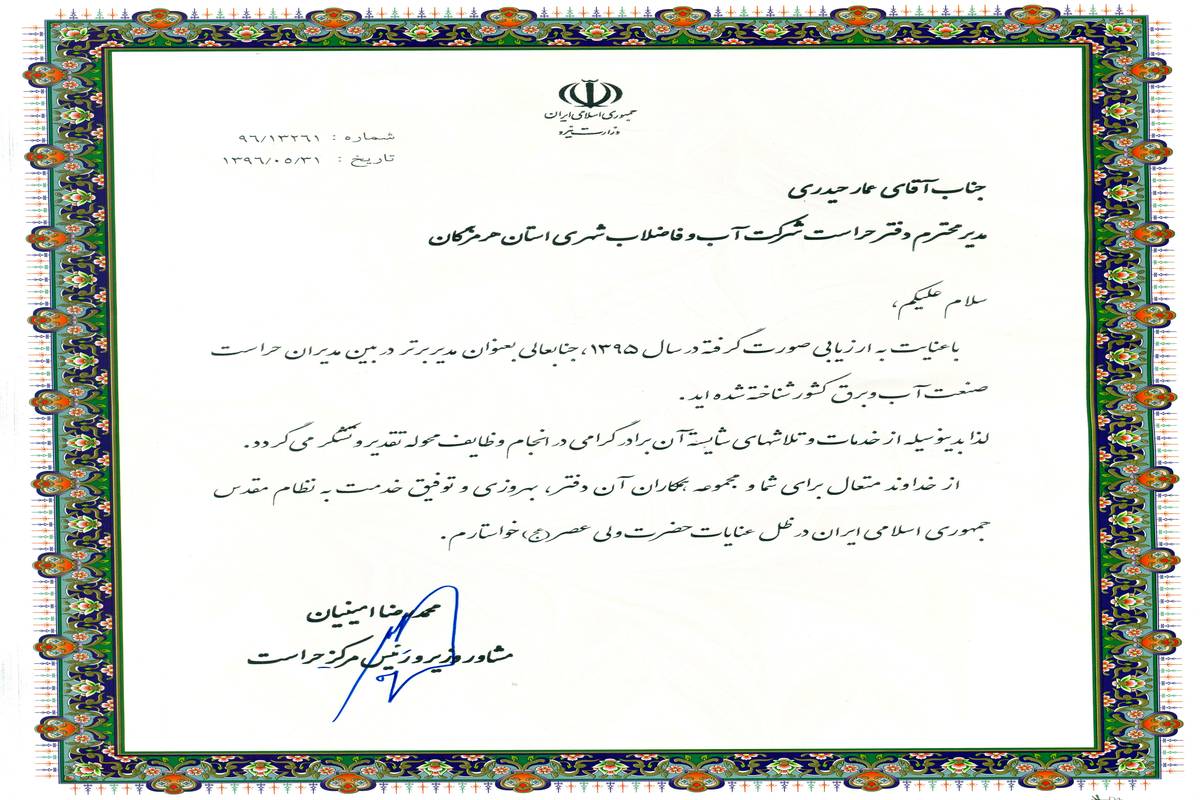 جمهوری اسلامی ایران
وزارت نیرو
شماره : ۹۶/۱۳۲۶۱
تاریخ : ۱۳۹۶/۰۵/۳۱
جناب آقای عمار حیدری
مدیر محترم دفتر حراست شرکت آب و فاضلاب شهری استان هرمزگان
سلام علیکم،
با عنایت به ارزیابی صورت گرفته در سال ۱۳۹۵، جنابعالی بعنوان مدیر برتر در بین مدیران حراست
صنعت آب و برق کشور شناخته شده اید.
لذا بدینوسیله از خدمات و تلاشهای شایسته آن برادر گرامی در انجام وظایف محوله تقدیر و تشکر می گردد.
از خداوند متعال برای شما و مجموعه همکاران آن دفتر، بهروزی و توفیق خدمت به نظام مقدس
جمهوری اسلامی ایران در ظل عنایات حضرت ولی عصر (عج) خواستارم.
محمدرضا امینیان
مشاور وزیر و رئیس مرکز حراست